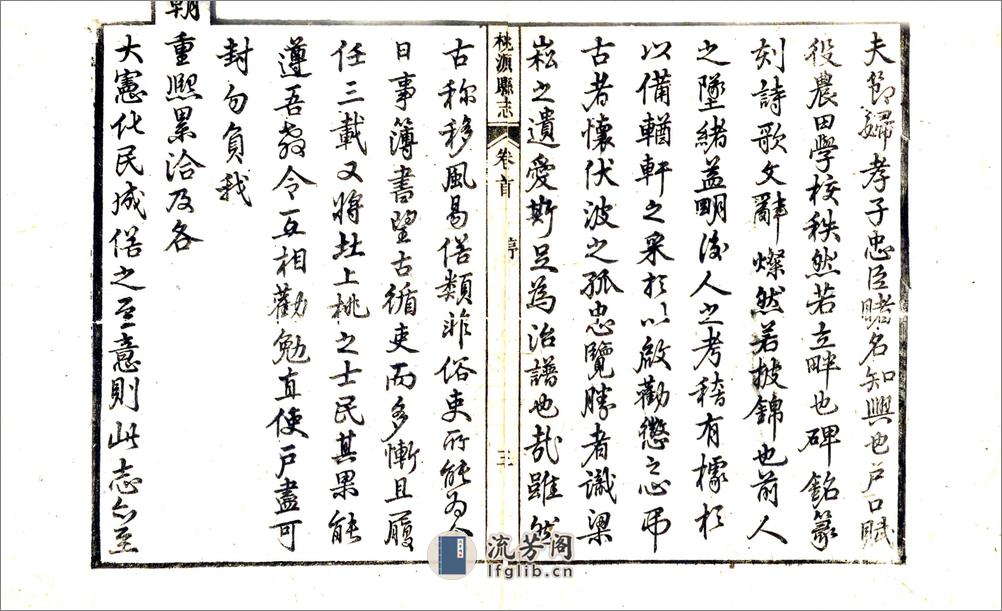 夫節婦孝子忠臣睹名知興也戶口賦
役農田學校秩然若立畔也碑銘篆
刻詩歌文辭燦然若披錦也前人
之墜緒益明後人之考稽有據於
以備輶軒之采於以啟勸懲之心弔
古者懷伏波之孤忠覽勝者識梁
崧之遺愛斯足為治譜也哉雖然
桃源縣志 卷首 序 三
古称移風易俗類非俗吏所能為今
日事簿書望古循吏而多慚且履
任三載又將杜上桃之士民其果能
遵吾教令互相勸勉直使戶盡可
封勿負我
朝
重熙累洽及各
大憲化民成俗之至意則此志之至
流芳阁
lfglib.cn